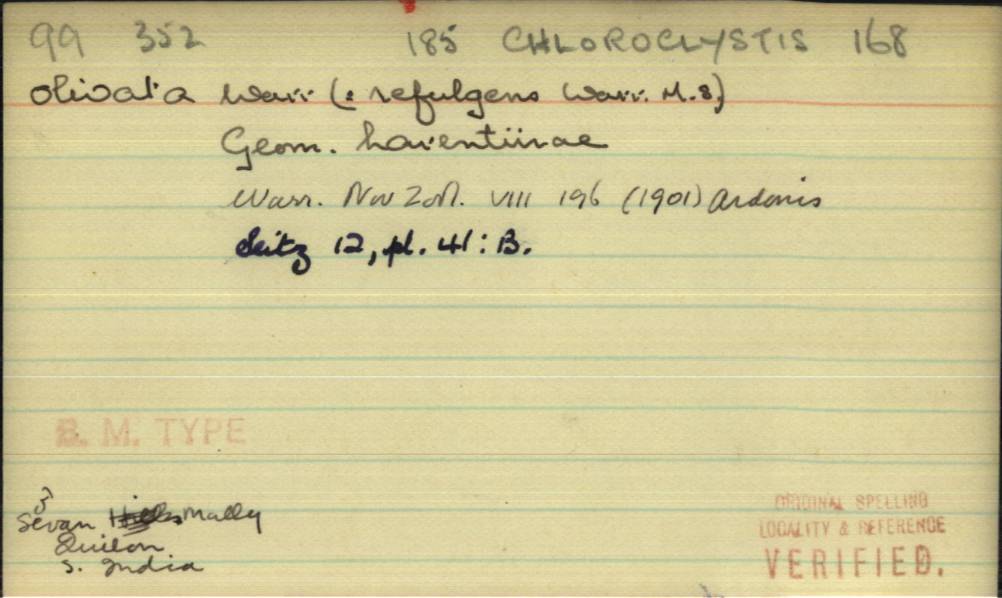 99 352 185 CHLOROCLYSTIS 168
olivata Warr (= refulgens Warr. M.S)
Geom. Larentiinae
Warr. Nov Zool. VIII 196 (1901) Ardonis
Seitz 12, pl. 41 : B.
B. M. TYPE
Sevan Hills Mally
Quilon.
S. India
ORIGINAL SPELLING
LOCALITY & REFERENCE
VERIFIED.